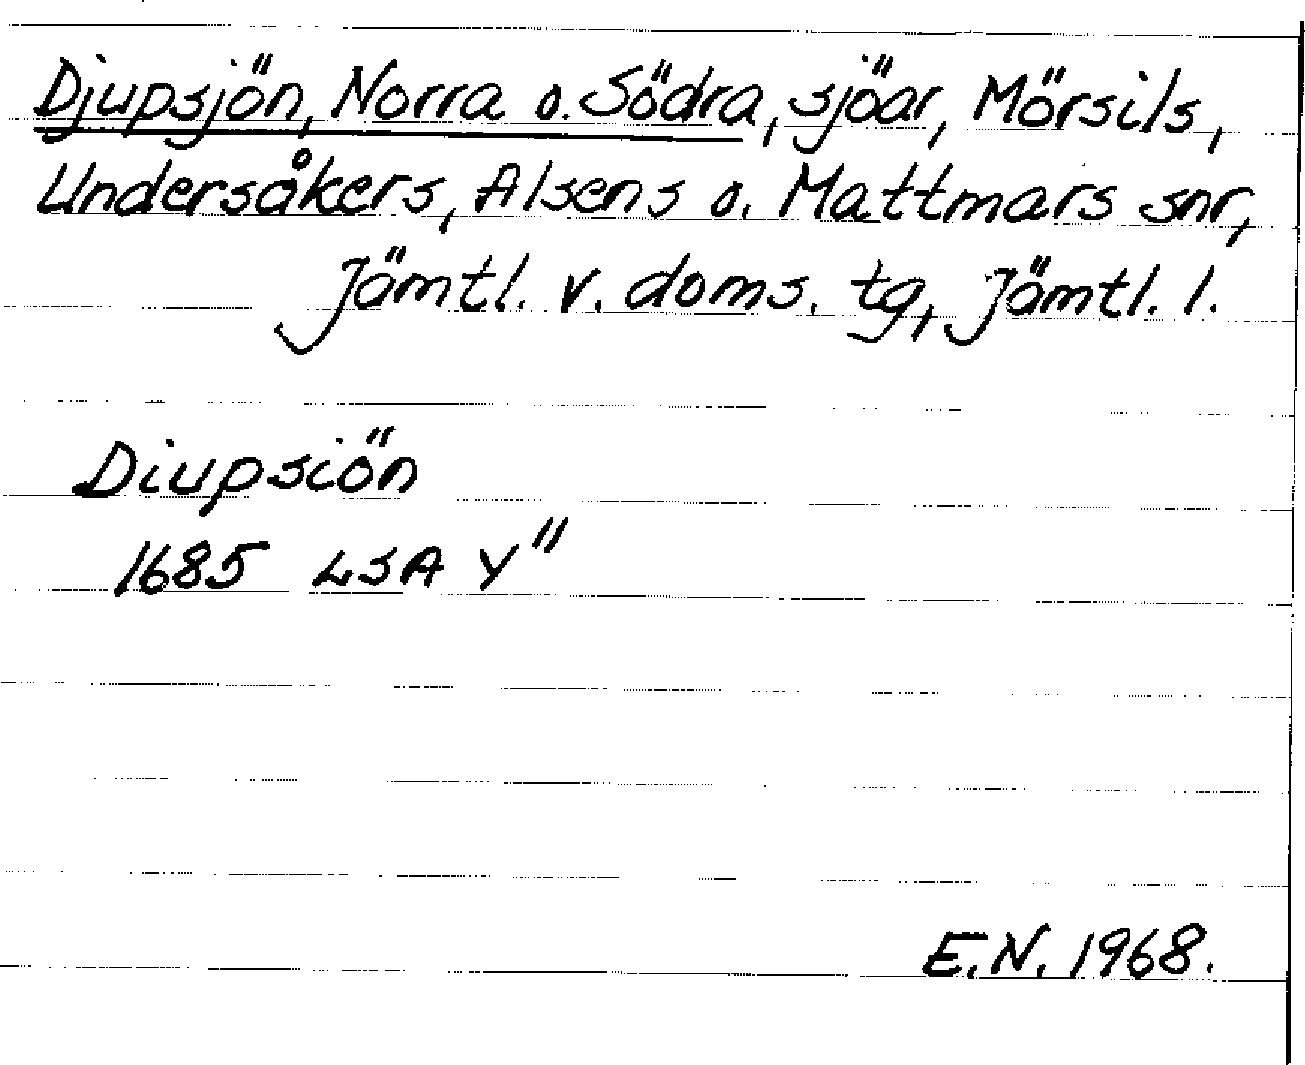 Djupsjön, Norra o. Södra, sjöar, Mörsils,
Undersåkers, Alsens o. Mattmars snr,
Jämtl. v. doms. tg, Jämtl. l.
Diupsiön
1685 LSA Y"
E.N. 1968.